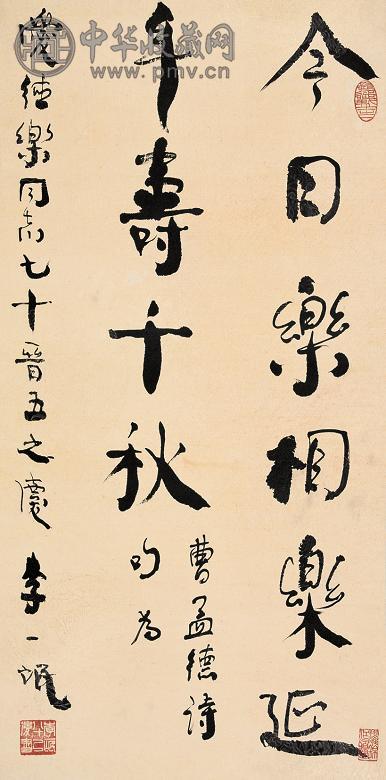 中华收藏网
www.pmv.cn
今日樂相樂延
年壽千秋
曹孟德诗
句为
樂同志七十晋五之慶 李一氓